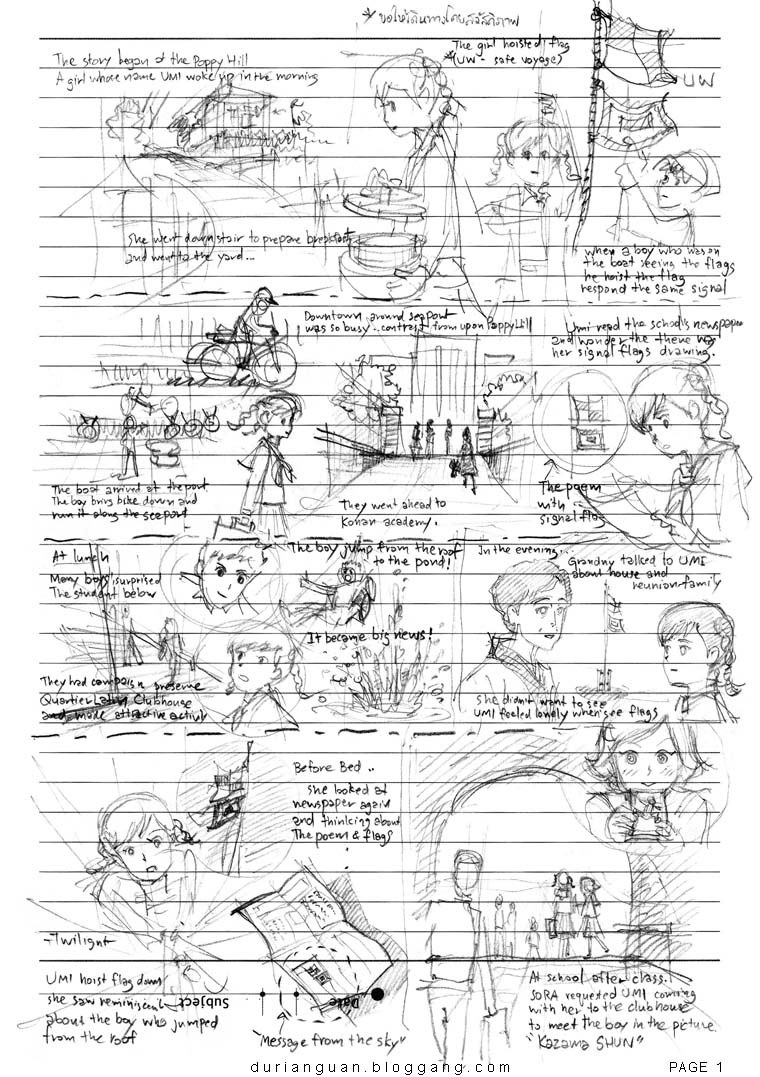 * ขอให้เดินทางโดยสวัสดิภาพ
The story began at the Poppy Hill
A girl whose name UMI woke up in the morning
The girl hoisted flag
*(UW - safe voyage)
UW
She went downstair to prepare breakfast
and went to the yard...
when a boy who was on
the boat seeing the flags
he hoist the flag
respond the same signal
Downtown around seaport
was so busy.. contrast from upon Poppy Hill
Umi read the school's newspaper
and wonder the there was
her signal flags drawing.
The boat arrived at the port
The boy bring bike down and
run it along the seaport
They went ahead to
Konan academy.
The poem
with
signal flag
At lunch
Many boys surprised
The student below
The boy jump from the roof
to the pond!
It became big news!
In the evening...
Grandny talked to UMI
about house and
reunion-family
They had campaign preserve
Quartier Latin Clubhouse
and made attractive activity
She didn't want to see
UMI feeled lonely when see flags
Before Bed ..
She looked at
newspaper again
and thinking about
The poem & flags
-Twilight
UMI hoist flag down
she saw reminiscent
about the boy who jumped
from the roof
Subject
Date
"Message from the sky"
At school after class.
SORA requested UMI coming
with her to the clubhouse
to meet the boy in the picture.
"Kazama SHUN"
durianguan.bloggang.com
PAGE 1